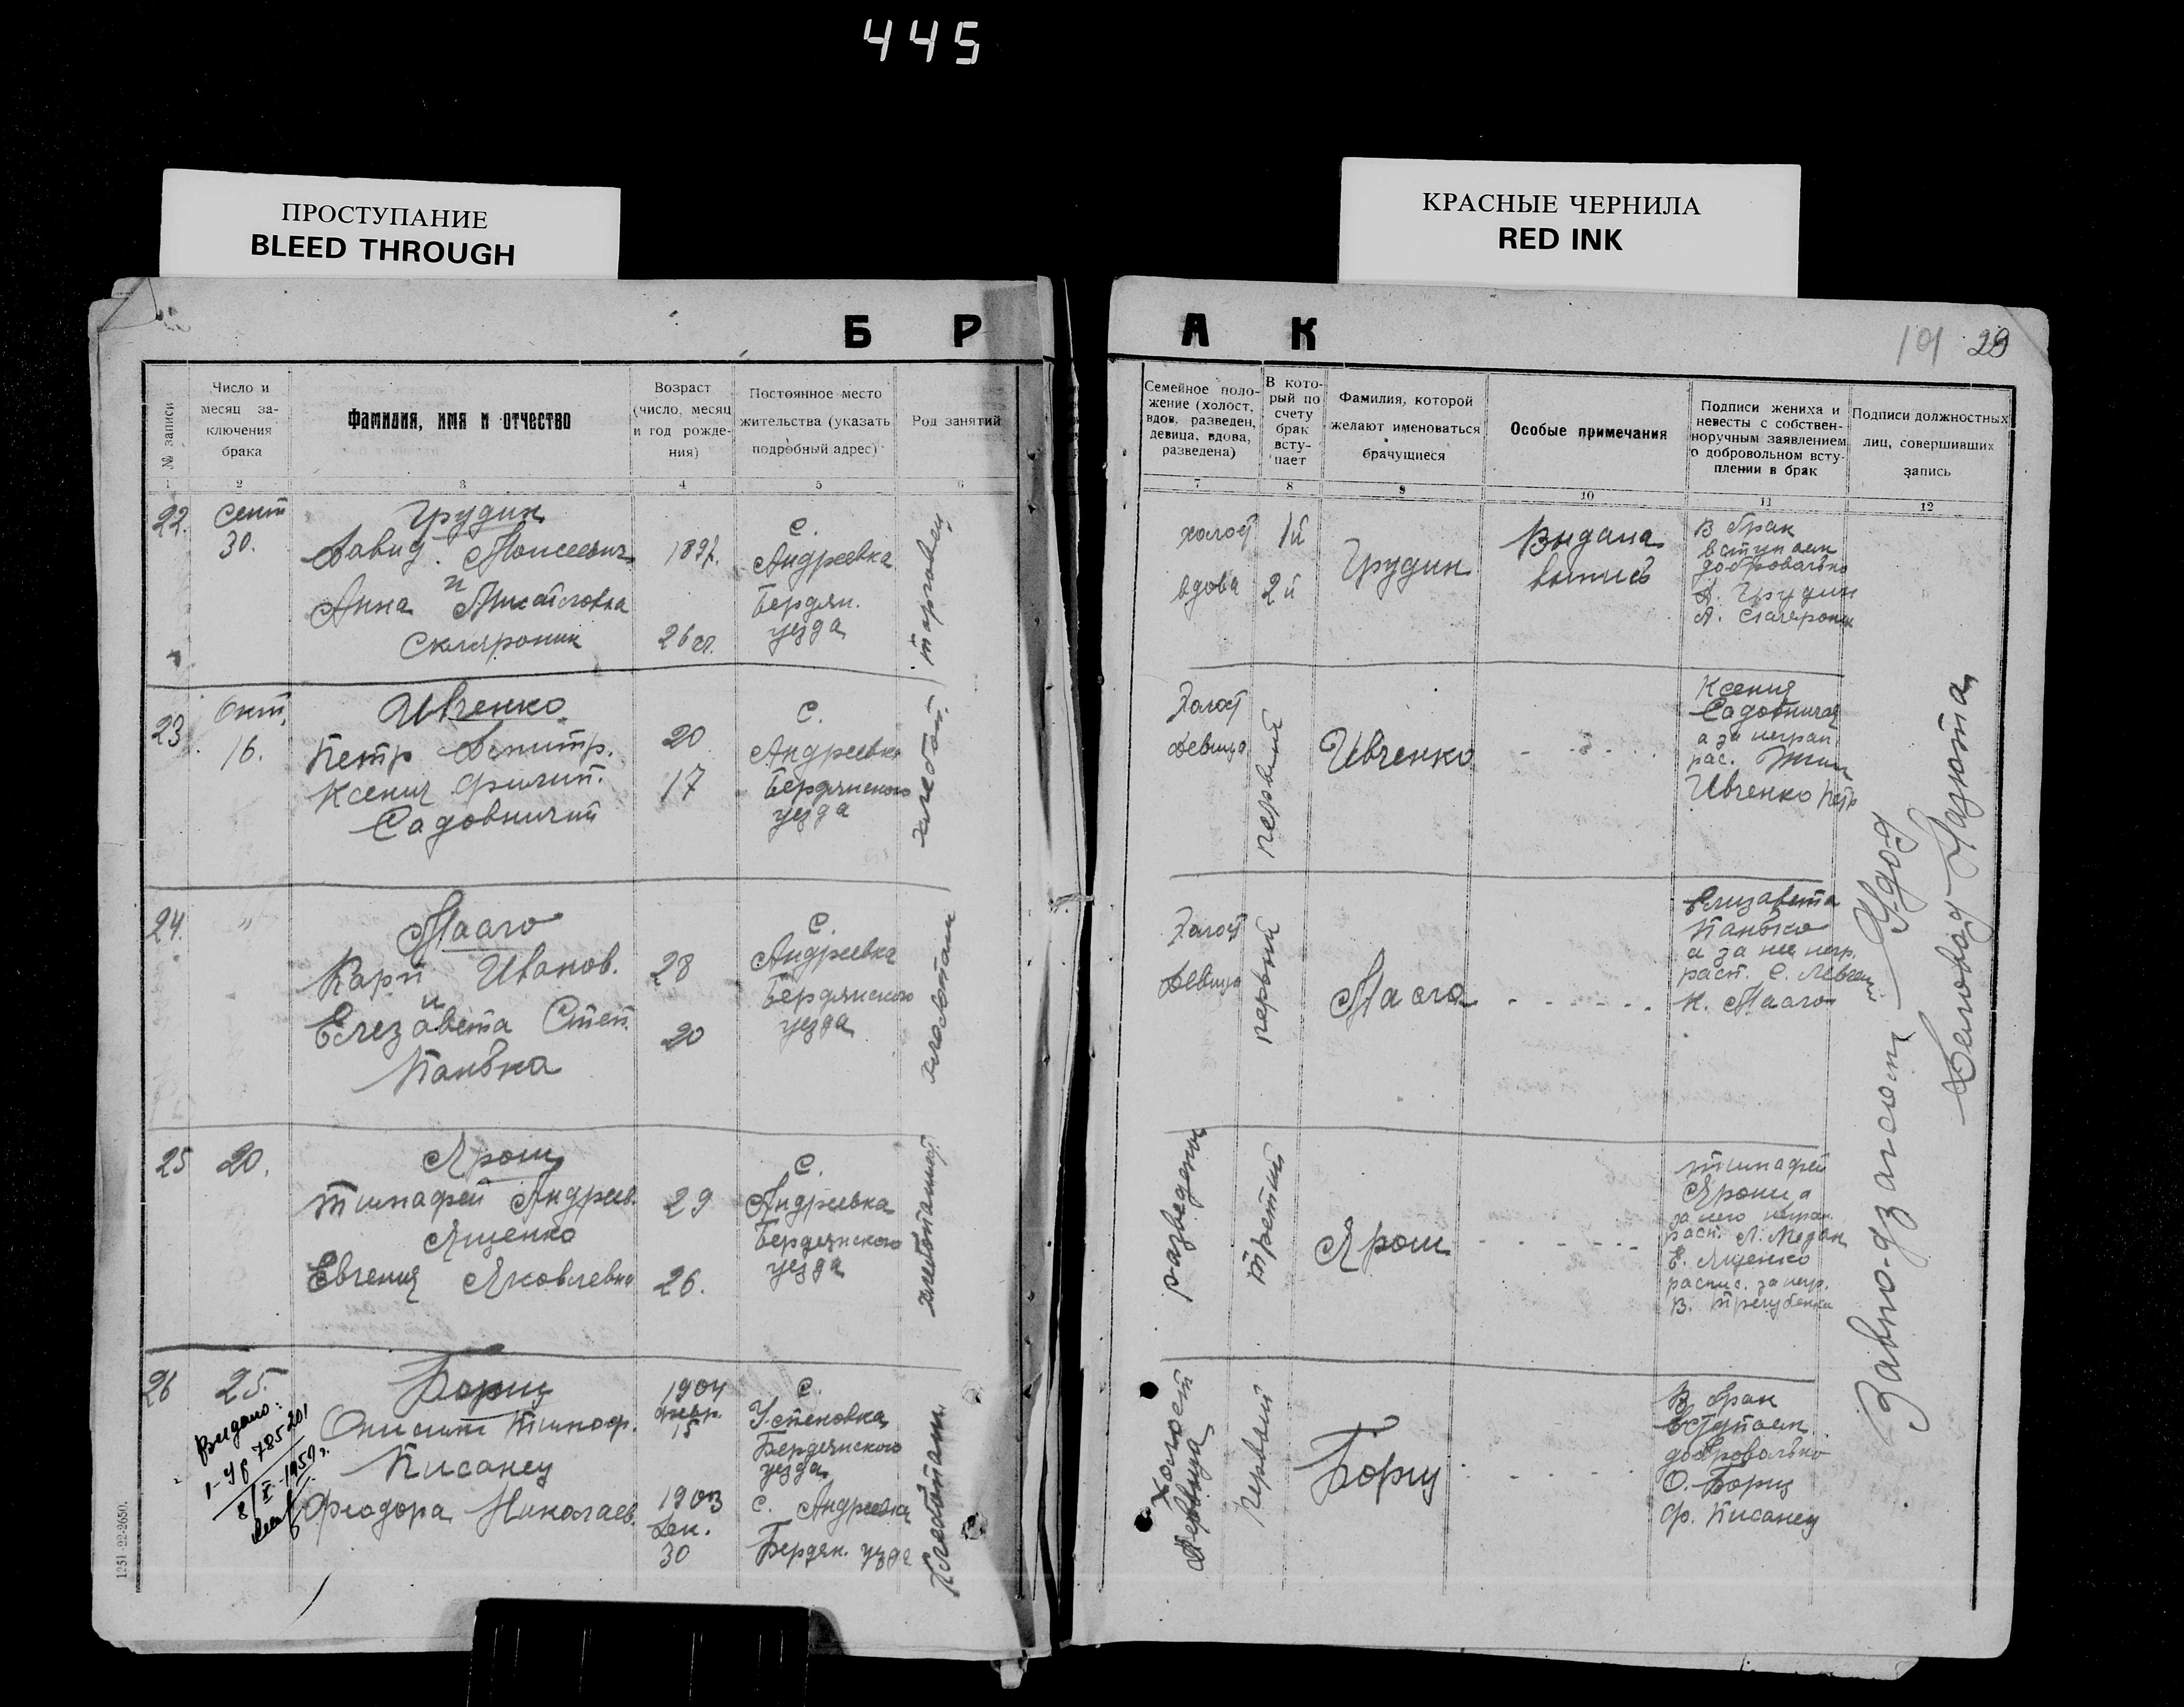 445
ПРОСТУПАНИЕ
BLEED THROUGH
КРАСНЫЕ ЧЕРНИЛА
RED INK
Б Р А К
29
№ записи
Число и месяц заключения брака
Фамилия, имя и отчество
Возраст (число, месяц и год рождения)
Постоянное место жительства (указать подробный адрес)
Род занятий
Семейное положение (холост, вдов, разведен, девица, вдова, разведена)
В который по счету брак вступает
Фамилия, которой желают именоваться брачущиеся
Особые примечания
Подписи жениха и невесты с собственноручным заявлением о добровольном вступлении в брак
Подписи должностных лиц, совершивших запись
1 2 3 4 5 6 7 8 9 10 11 12
22.
Сент
30.
Грудин
Давид Моисеевич
и
Анна
26 л.
с.
Андреевка
Бердян.
уезда
торговец
холост
вдова
1й
2й
Грудин
Выдана
выпись
В брак
вступаем
добровольно
Грудин
А.
23.
Окт.
16.
Ивченко
Петр Дмитр.
Ксения Филип.
20
17
с.
Андреевка
Бердянского
уезда
хлебоп.
Холост
Девица
первый
Ивченко
Ксения
а за негра
рас.
Ивченко Петр
24.
"
Масло
Карп Иванов.
и
Елезавета Степ.
Панько
28
20
с.
Андреевка
Бердянского
уезда
хлебопаш
Холост
Девица
первый
Елизавета
Панько
а за нее негр.
расп. С.
К.
25
20.
Ярош
Тимофей Андреев.
Ященко
Евгения Яковлевна
29
26.
с.
Андреевка
Бердянского
уезда
разведены
третий
Ярош
Тимофей
Ярош а
за него неграм.
расп. Л.
Е. Ященко
распис. за негр.
В.
26
25.
Выдано:
785201
1959 г.
Борщ
Онисим Тимоф.
Писанец
Феодора Николаев.
1904
февр.
15
1903
Дек.
30
с.
Успеновка
Бердянского
уезда
с. Андреевка
Бердян. уезда
Хлебопаш.
Холост
Девица
Первый
Борщ
В брак
вступаем
добровольно
О. Борщ
Ф. Писанец
1251-22-2650.